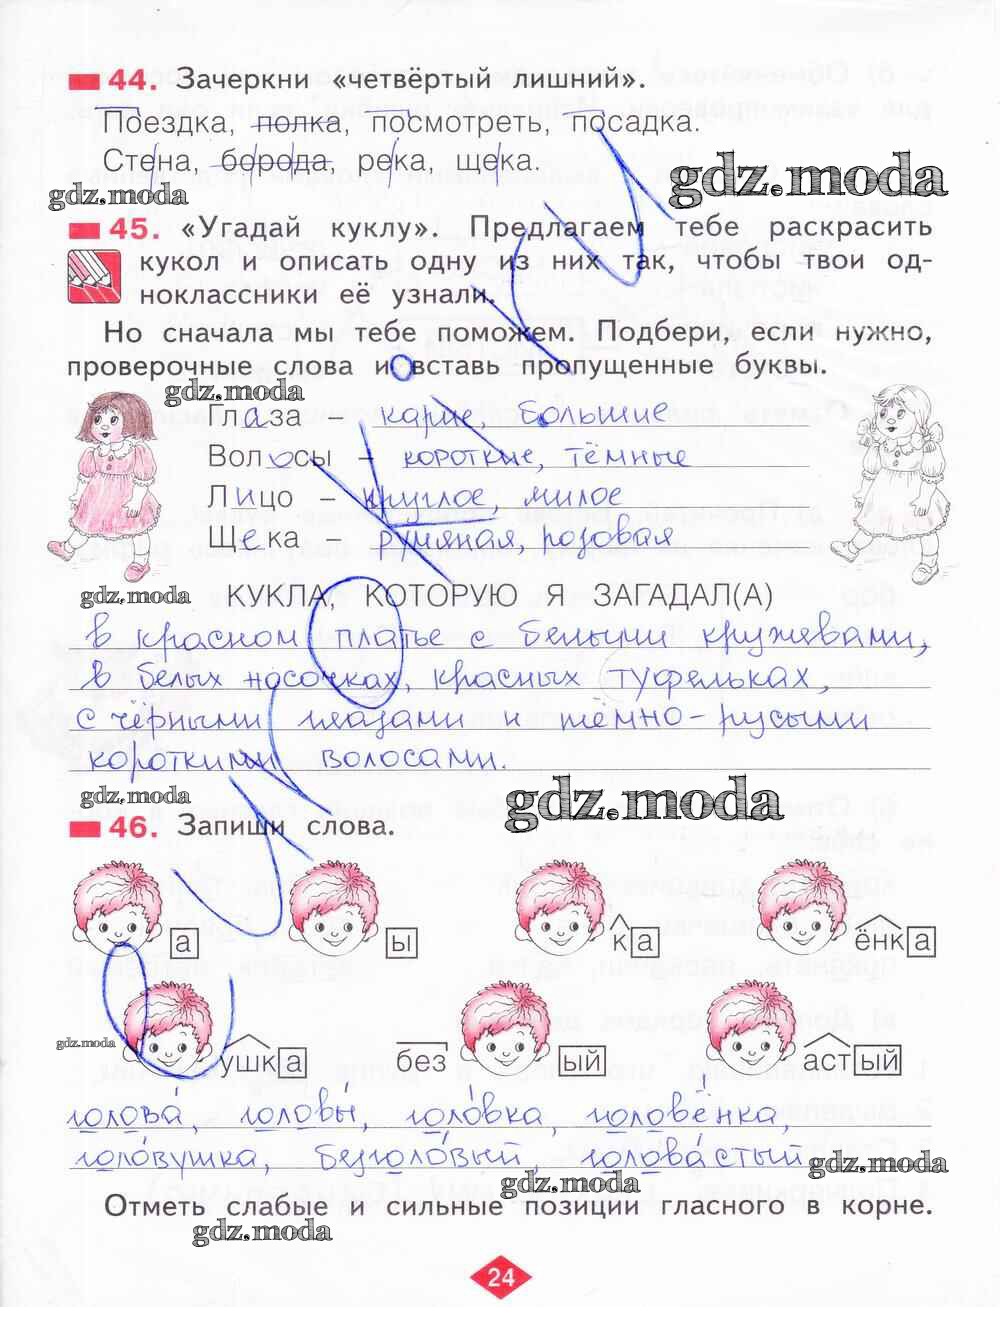 44. Зачеркни «четвёртый лишний».
Поездка, полка, посмотреть, посадка.
Стена, борода, река, щека.
gdz.moda
gdz.moda
45. «Угадай куклу». Предлагаем тебе раскрасить
кукол и описать одну из них так, чтобы твои од-
ноклассники её узнали.
Но сначала мы тебе поможем. Подбери, если нужно,
проверочные слова и вставь пропущенные буквы.
gdz.moda
Глаза – карие, большие
Волосы – короткие, тёмные
Лицо – круглое, милое
Щека – румяная, розовая
gdz.moda
КУКЛА, КОТОРУЮ Я ЗАГАДАЛ(А)
в красном платье с белыми кружевами,
в белых носочках, красных туфельках,
с чёрными глазами и тёмно-русыми
короткими волосами.
gdz.moda
gdz.moda
46. Запиши слова.
а ы ка ёнка
gdz.moda
ушка без ый астый
голова́, головы́, голо́вка, голове́нка,
голо́вушка, безголо́вый, голова́стый
gdz.moda
gdz.moda
Отметь слабые и сильные позиции гласного в корне.
gdz.moda
24